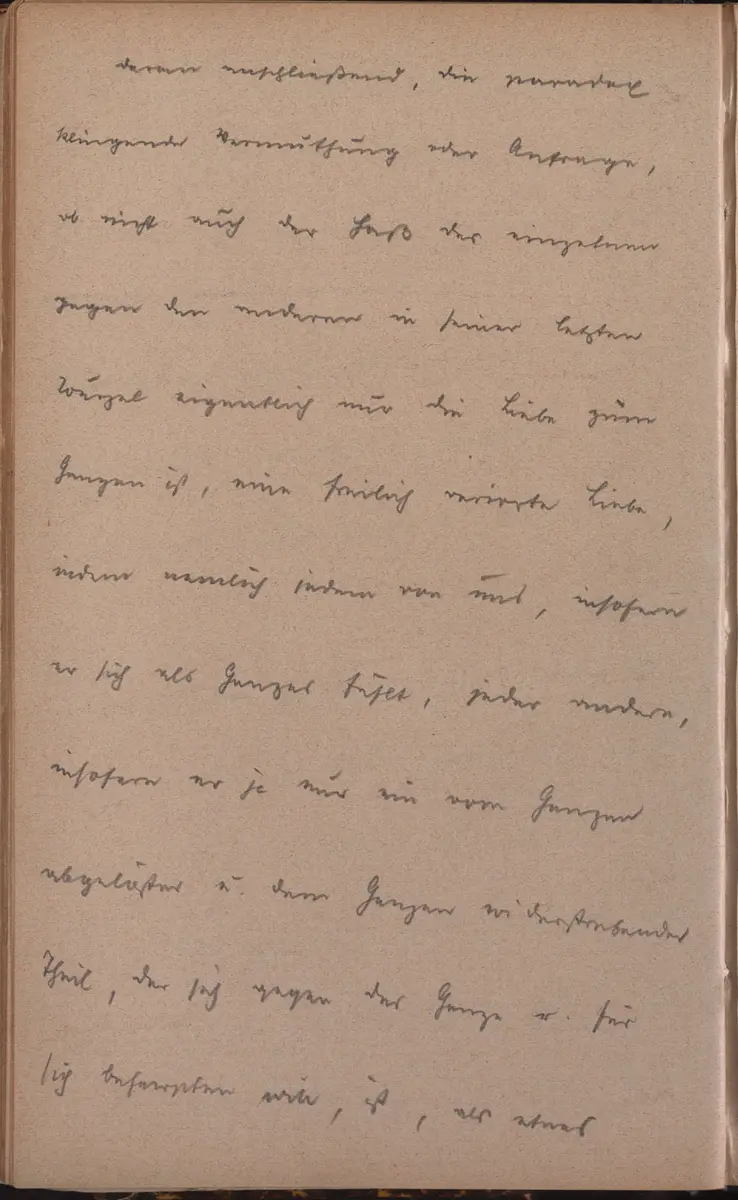 daran anschließend, die paradox
klingende Vermuthung oder Anfrage,
ob nicht auch der Haß des einzelnen
gegen den anderen in seiner letzten
Wurzel eigentlich nur die Liebe zum
Ganzen ist, eine freilich verirrte Liebe,
indem nemlich jedem von uns, insofern
er sich als Ganzes fühlt, jeder andere,
insofern er ja nur ein vom Ganzen
abgelöster u. dem Ganzen widerstrebender
Theil, der sich gegen das Ganze u. für
sich behaupten will, ist, als etwas